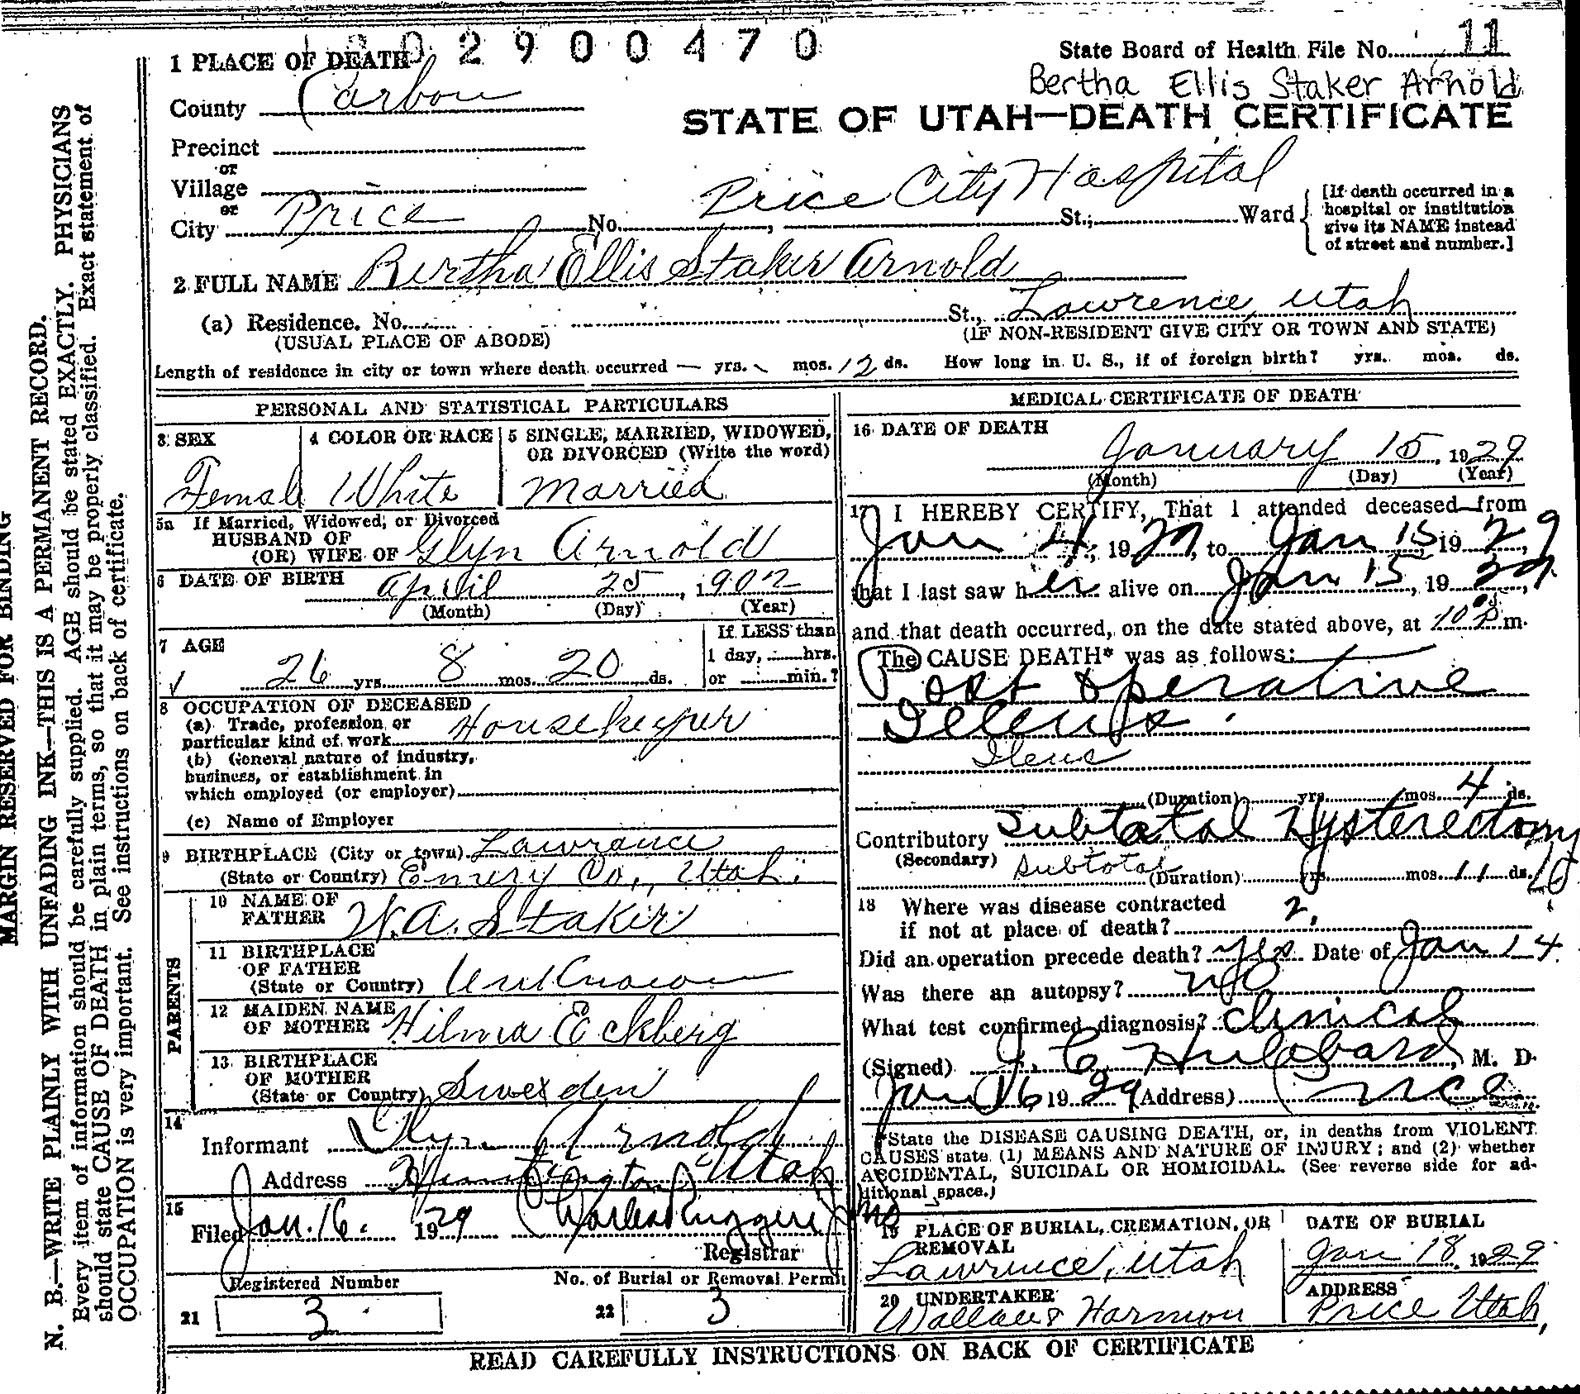 2900470
1 PLACE OF DEATH
State Board of Health File No. 11
Bertha Ellis Staker Arnold
County Carbon
STATE OF UTAH—DEATH CERTIFICATE
Precinct
or
Village
or
City Price No. Price City Hospital St.; Ward
[If death occurred in a
hospital or institution
give its NAME instead
of street and number.]
2 FULL NAME Bertha Ellis Staker Arnold
(a) Residence. No. St., Lawrence, Utah
(USUAL PLACE OF ABODE) (IF NON-RESIDENT GIVE CITY OR TOWN AND STATE)
Length of residence in city or town where death occurred — yrs. mos. 12 ds. How long in U. S., if of foreign birth? yrs. mos. ds.
PERSONAL AND STATISTICAL PARTICULARS
3 SEX
Female
4 COLOR OR RACE
White
5 SINGLE, MARRIED, WIDOWED,
OR DIVORCED (Write the word)
Married
5a If Married, Widowed, or Divorced
HUSBAND OF
(OR) WIFE OF Glyn Arnold
6 DATE OF BIRTH April 25, 1902
(Month) (Day) (Year)
7 AGE
26 yrs 8 mos. 20 ds.
If LESS than
1 day, hrs.
or min.?
8 OCCUPATION OF DECEASED
(a) Trade, profession or
particular kind of work Housekeeper
(b) General nature of industry,
business, or establishment in
which employed (or employer)
(c) Name of Employer
9 BIRTHPLACE (City or town) Lawrance
(State or Country) Emery Co., Utah.
PARENTS
10 NAME OF
FATHER W.A. Staker
11 BIRTHPLACE
OF FATHER
(State or Country) Unknown
12 MAIDEN NAME
OF MOTHER Hilma Eckberg
13 BIRTHPLACE
OF MOTHER
(State or Country) Sweden
14
Informant Glyn Arnold
Address Huntington, Utah
15
Filed Jan. 16. 1929
Registrar
Registered Number
21 3
No. of Burial or Removal Permit
22 3
MEDICAL CERTIFICATE OF DEATH
16 DATE OF DEATH
January 15, 1929
(Month) (Day) (Year)
17 I HEREBY CERTIFY, That I attended deceased from
Jan 4, 1929, to Jan 15 1929,
that I last saw her alive on Jan 15, 1929,
and that death occurred, on the date stated above, at m.
The CAUSE DEATH* was as follows:
Post operative
Illeus.
Ileus
(Duration) yrs mos. 4 ds.
Contributory Subtatal Hysterectomy
(Secondary) Subtotal
(Duration) yrs mos. 11 ds.
18 Where was disease contracted
if not at place of death?
Did an operation precede death? yes Date of Jan 14.
Was there an autopsy? no
What test confirmed diagnosis? Clinical
(Signed) J. C. Hubbard, M. D.
Jan 16 1929 (Address) Price
*State the DISEASE CAUSING DEATH, or, in deaths from VIOLENT
CAUSES state (1) MEANS AND NATURE OF INJURY; and (2) whether
ACCIDENTAL, SUICIDAL OR HOMICIDAL. (See reverse side for ad-
ditional space.)
19 PLACE OF BURIAL, CREMATION, OR
REMOVAL
Lawrence, Utah
DATE OF BURIAL
Jan 18, 1929
20 UNDERTAKER
Wallace & Harmon
ADDRESS
Price Utah,
READ CAREFULLY INSTRUCTIONS ON BACK OF CERTIFICATE
MARGIN RESERVED FOR BINDING
N. B.—WRITE PLAINLY WITH UNFADING INK—THIS IS A PERMANENT RECORD.
Every item of information should be carefully supplied. AGE should be stated EXACTLY. PHYSICIANS
should state CAUSE OF DEATH in plain terms, so that it may be properly classified. Exact statement of
OCCUPATION is very important. See instructions on back of certificate.